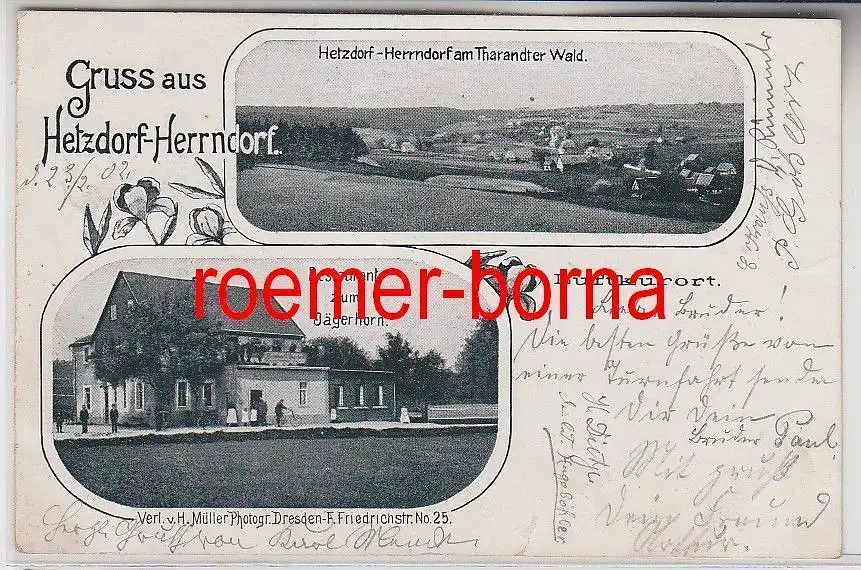 Gruss aus
Hetzdorf-Herrndorf.
Hetzdorf-Herrndorf am Tharandter Wald.
d. 23/2. 02.
Restaurant
zum
Jägerhorn.
Luftkurort.
roemer-borna
Lieber Bruder!
Die besten Grüße von
einer Turnfahrt sendet
Dir Dein
Bruder Paul
Mit gruß
Dein Freund
Arthur.
Verl. v. H. Müller Photogr. Dresden-F. Friedrichstr. No. 25.
Herzl. Gruß von Karl